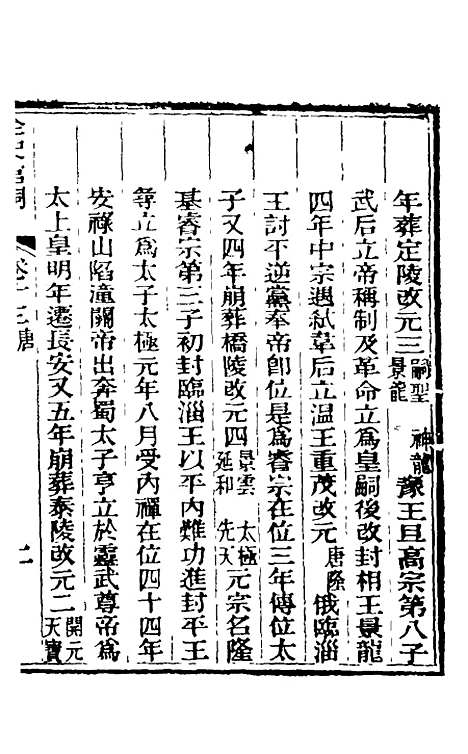 年葬定陵改元三嗣聖 神龍 景龍 豫王旦高宗第八子
武后立帝稱制及革命立為皇嗣後改封相王景龍
四年中宗遇弒韋后立温王重茂改元唐隆俄臨淄
王討平逆黨奉帝卽位是為睿宗在位三年傳位太
子又四年崩葬橋陵改元四景雲 太極 延和 先天元宗名隆
基睿宗第三子初封臨淄王以平內難功進封平王
尋立為太子太極元年八月受內禪在位四十四年
安祿山陷潼關帝出奔蜀太子亨立於靈武尊帝為
太上皇明年遷長安又五年崩葬泰陵改元二開元 天寶
卷十三唐